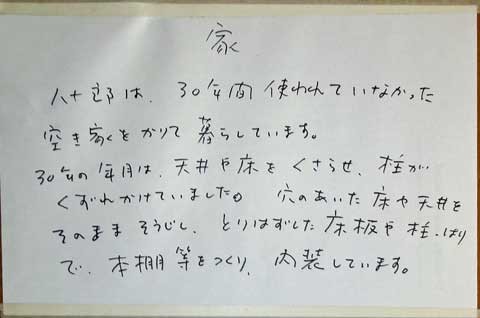 家
八十郎は、30年間使われていなかった
空き家をかりて暮らしています。
30年の年月は、天井や床をくさらせ、柱が
くずれかけていました。穴のあいた床や天井を
そのままそうじし、とりはずした床板や柱、はり
で、本棚等をつくり、内装しています。